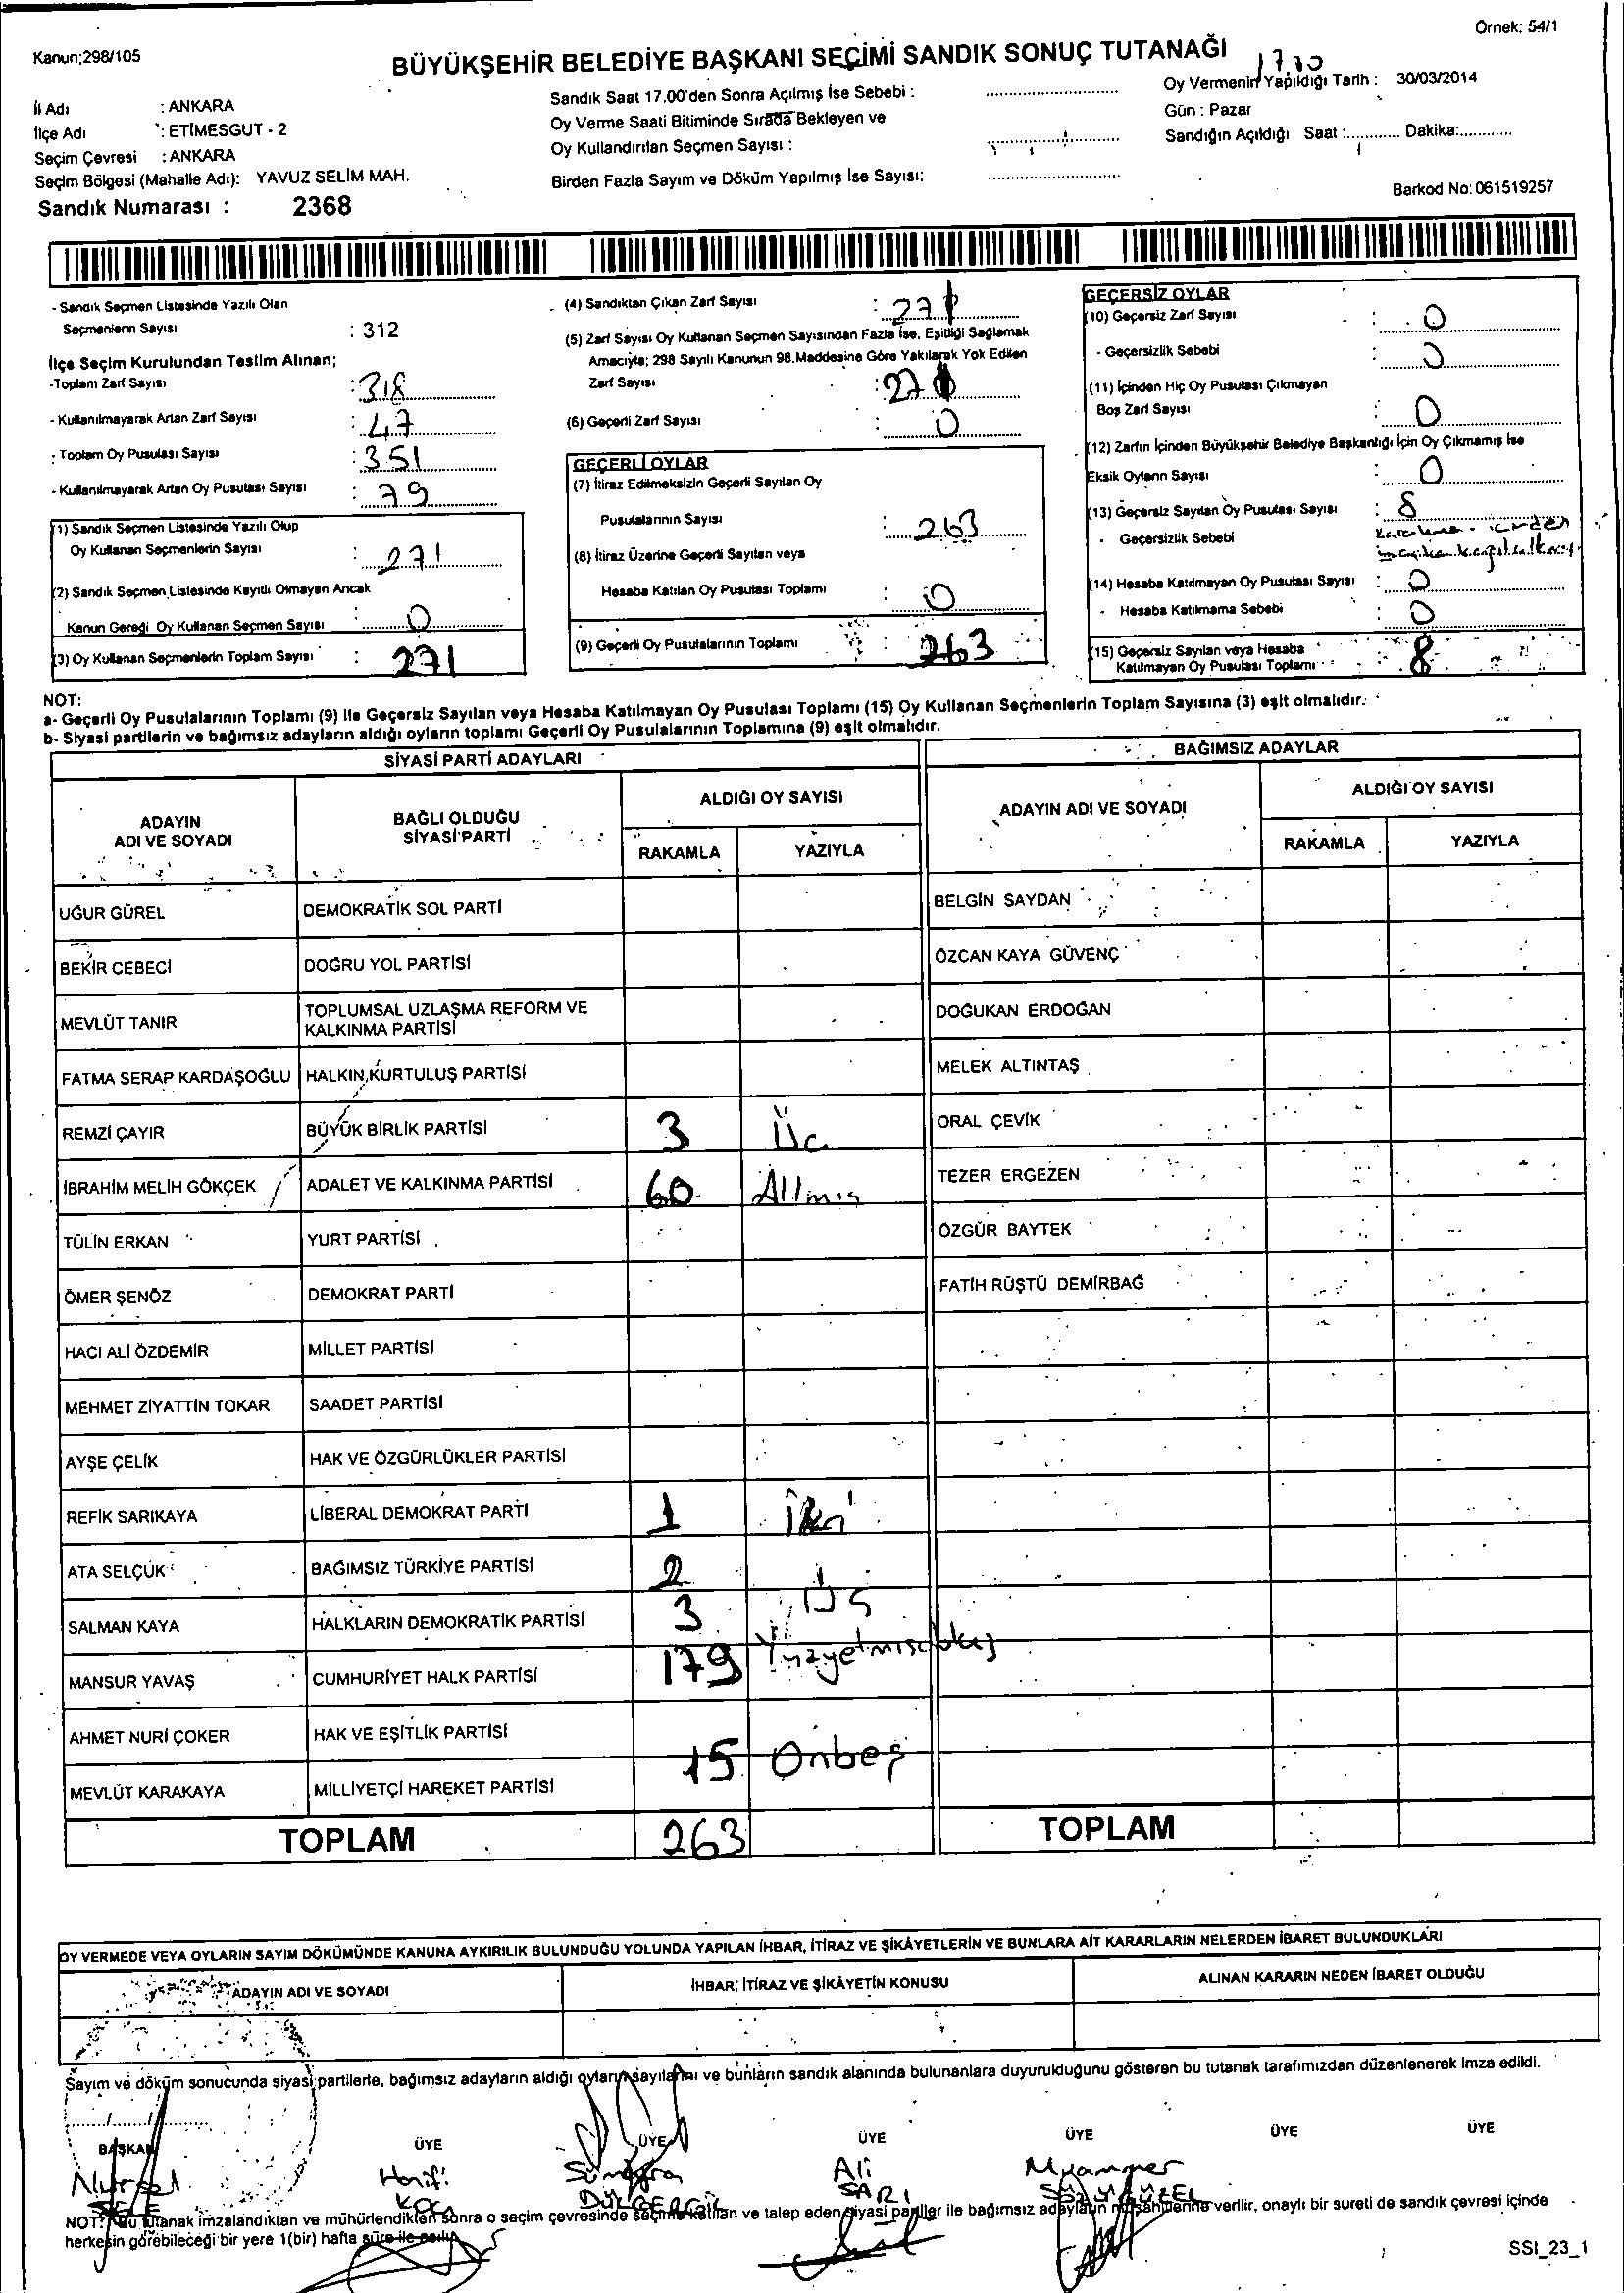 Örnek: 54/1
Kanun;298/105
BÜYÜKŞEHİR BELEDİYE BAŞKANI SEÇİMİ SANDIK SONUÇ TUTANAĞI
İl Adı : ANKARA
İlçe Adı : ETİMESGUT - 2
Seçim Çevresi : ANKARA
Seçim Bölgesi (Mahalle Adı): YAVUZ SELİM MAH.
Sandık Numarası : 2368
Sandık Saat 17.00'den Sonra Açılmış İse Sebebi :
Oy Verme Saati Bitiminde Sırada Bekleyen ve
Oy Kullandırılan Seçmen Sayısı :
Birden Fazla Sayım ve Döküm Yapılmış İse Sayısı:
Oy Vermenin Yapıldığı Tarih : 30/03/2014
Gün : Pazar
Sandığın Açıldığı Saat :............ Dakika:............
Barkod No: 061519257
- Sandık Seçmen Listesinde Yazılı Olan
Seçmenlerin Sayısı : 312
İlçe Seçim Kurulundan Teslim Alınan;
-Toplam Zarf Sayısı : 318
- Kullanılmayarak Artan Zarf Sayısı : 47
- Toplam Oy Pusulası Sayısı : 351
- Kullanılmayarak Artan Oy Pusulası Sayısı : 79
(1) Sandık Seçmen Listesinde Yazılı Olup
Oy Kullanan Seçmenlerin Sayısı : 271
(2) Sandık Seçmen Listesinde Kayıtlı Olmayan Ancak
Kanun Gereği Oy Kullanan Seçmen Sayısı : 0
(3) Oy Kullanan Seçmenlerin Toplam Sayısı : 271
(4) Sandıktan Çıkan Zarf Sayısı : 271
(5) Zarf Sayısı Oy Kullanan Seçmen Sayısından Fazla İse, Eşitliği Sağlamak
Amacıyla; 298 Sayılı Kanunun 98.Maddesine Göre Yakılarak Yok Edilen
Zarf Sayısı :
(6) Geçerli Zarf Sayısı : 0
GEÇERLİ OYLAR
(7) İtiraz Edilmeksizin Geçerli Sayılan Oy
Pusulalarının Sayısı : 263
(8) İtiraz Üzerine Geçerli Sayılan veya
Hesaba Katılan Oy Pusulası Toplamı : 0
(9) Geçerli Oy Pusulalarının Toplamı : 263
GEÇERSİZ OYLAR
(10) Geçersiz Zarf Sayısı : 0
- Geçersizlik Sebebi : 0
(11) İçinden Hiç Oy Pusulası Çıkmayan
Boş Zarf Sayısı : 0
(12) Zarfın İçinden Büyükşehir Belediye Başkanlığı İçin Oy Çıkmamış İse
Eksik Oyların Sayısı : 0
(13) Geçersiz Sayılan Oy Pusulası Sayısı : 8
- Geçersizlik Sebebi
(14) Hesaba Katılmayan Oy Pusulası Sayısı : 0
- Hesaba Katılmama Sebebi : 0
(15) Geçersiz Sayılan veya Hesaba
Katılmayan Oy Pusulası Toplamı : 8
NOT:
a- Geçerli Oy Pusulalarının Toplamı (9) ile Geçersiz Sayılan veya Hesaba Katılmayan Oy Pusulası Toplamı (15) Oy Kullanan Seçmenlerin Toplam Sayısına (3) eşit olmalıdır.
b- Siyasi partilerin ve bağımsız adayların aldığı oyların toplamı Geçerli Oy Pusulalarının Toplamına (9) eşit olmalıdır.
SİYASİ PARTİ ADAYLARI
ADAYIN ADI VE SOYADI
BAĞLI OLDUĞU SİYASİ PARTİ
ALDIĞI OY SAYISI
RAKAMLA YAZIYLA
UĞUR GÜREL DEMOKRATİK SOL PARTİ
BEKİR CEBECİ DOĞRU YOL PARTİSİ
MEVLÜT TANIR TOPLUMSAL UZLAŞMA REFORM VE KALKINMA PARTİSİ
FATMA SERAP KARDAŞOĞLU HALKIN KURTULUŞ PARTİSİ
REMZİ ÇAYIR BÜYÜK BİRLİK PARTİSİ 3 Üç
İBRAHİM MELİH GÖKÇEK ADALET VE KALKINMA PARTİSİ 60 Altmış
TÜLİN ERKAN YURT PARTİSİ
ÖMER ŞENÖZ DEMOKRAT PARTİ
HACI ALİ ÖZDEMİR MİLLET PARTİSİ
MEHMET ZİYATTİN TOKAR SAADET PARTİSİ
AYŞE ÇELİK HAK VE ÖZGÜRLÜKLER PARTİSİ
REFİK SARIKAYA LİBERAL DEMOKRAT PARTİ 1 İki
ATA SELÇUK BAĞIMSIZ TÜRKİYE PARTİSİ 2
SALMAN KAYA HALKLARIN DEMOKRATİK PARTİSİ 3 Üç
MANSUR YAVAŞ CUMHURİYET HALK PARTİSİ 179
AHMET NURİ ÇOKER HAK VE EŞİTLİK PARTİSİ
MEVLÜT KARAKAYA MİLLİYETÇİ HAREKET PARTİSİ 15 Onbeş
TOPLAM 263
BAĞIMSIZ ADAYLAR
ADAYIN ADI VE SOYADI
ALDIĞI OY SAYISI
RAKAMLA YAZIYLA
BELGİN SAYDAN
ÖZCAN KAYA GÜVENÇ
DOĞUKAN ERDOĞAN
MELEK ALTINTAŞ
ORAL ÇEVİK
TEZER ERGEZEN
ÖZGÜR BAYTEK
FATİH RÜŞTÜ DEMİRBAĞ
TOPLAM
OY VERMEDE VEYA OYLARIN SAYIM DÖKÜMÜNDE KANUNA AYKIRILIK BULUNDUĞU YOLUNDA YAPILAN İHBAR, İTİRAZ VE ŞİKÂYETLERİN VE BUNLARA AİT KARARLARIN NELERDEN İBARET BULUNDUKLARI
ADAYIN ADI VE SOYADI
İHBAR, İTİRAZ VE ŞİKÂYETİN KONUSU
ALINAN KARARIN NEDEN İBARET OLDUĞU
Sayım ve döküm sonucunda siyasi partilerle, bağımsız adayların aldığı oyların sayılarını ve bunların sandık alanında bulunanlara duyurulduğunu gösteren bu tutanak tarafımızdan düzenlenerek imza edildi.
BAŞKAN ÜYE ÜYE ÜYE ÜYE ÜYE ÜYE
Nursel Hanifi Ali Muammer
KOÇ SARI
NOT: Bu tutanak imzalandıktan ve mühürlendikten sonra o seçim çevresinde seçime katılan ve talep eden siyasi partiler ile bağımsız adayların müşahitlerine verilir, onaylı bir sureti de sandık çevresi içinde
herkesin görebileceği bir yere 1(bir) hafta süre ile asılır.
SSI_23_1